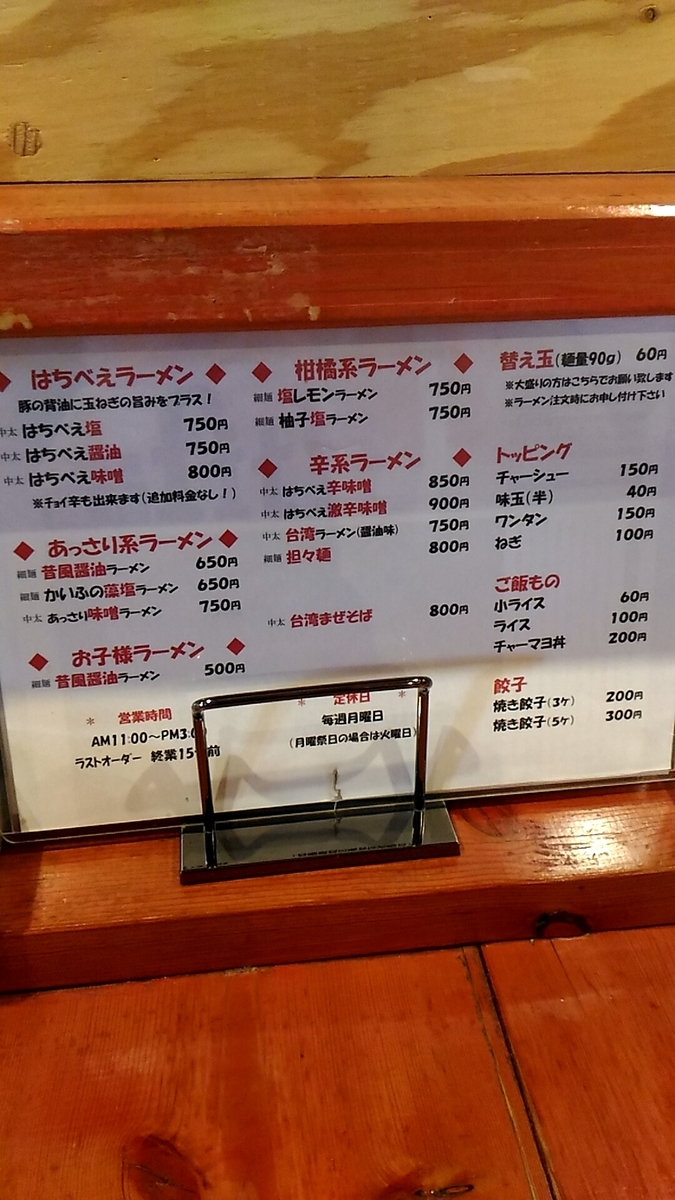 ◆ はちべえラーメン ◆
豚の背油に玉ねぎの旨みをプラス！
中太 はちべえ塩 750円
中太 はちべえ醤油 750円
中太 はちべえ味噌 800円
※チョイ辛も出来ます（追加料金なし！）
◆ あっさり系ラーメン ◆
細麺 昔風醤油ラーメン 650円
細麺 かいふの藻塩ラーメン 650円
中太 あっさり味噌ラーメン 750円
◆ お子様ラーメン ◆
細麺 昔風醤油ラーメン 500円
＊ 営業時間
AM11:00〜PM3:0
ラストオーダー 終業15 前
◆ 柑橘系ラーメン ◆
細麺 塩レモンラーメン 750円
細麺 柚子塩ラーメン 750円
◆ 辛系ラーメン ◆
中太 はちべえ辛味噌 850円
中太 はちべえ激辛味噌 900円
中太 台湾ラーメン（醤油味） 750円
細麺 担々麺 800円
中太 台湾まぜそば 800円
＊ 定休日 ＊
毎週月曜日
（月曜祭日の場合は火曜日）
替え玉（麺量90g） 60円
※大盛りの方はこちらでお願い致します
※ラーメン注文時にお申し付け下さい
トッピング
チャーシュー 150円
味玉（半） 40円
ワンタン 150円
ねぎ 100円
ご飯もの
小ライス 60円
ライス 100円
チャーマヨ丼 200円
餃子
焼き餃子（3ケ） 200円
焼き餃子（5ケ） 300円